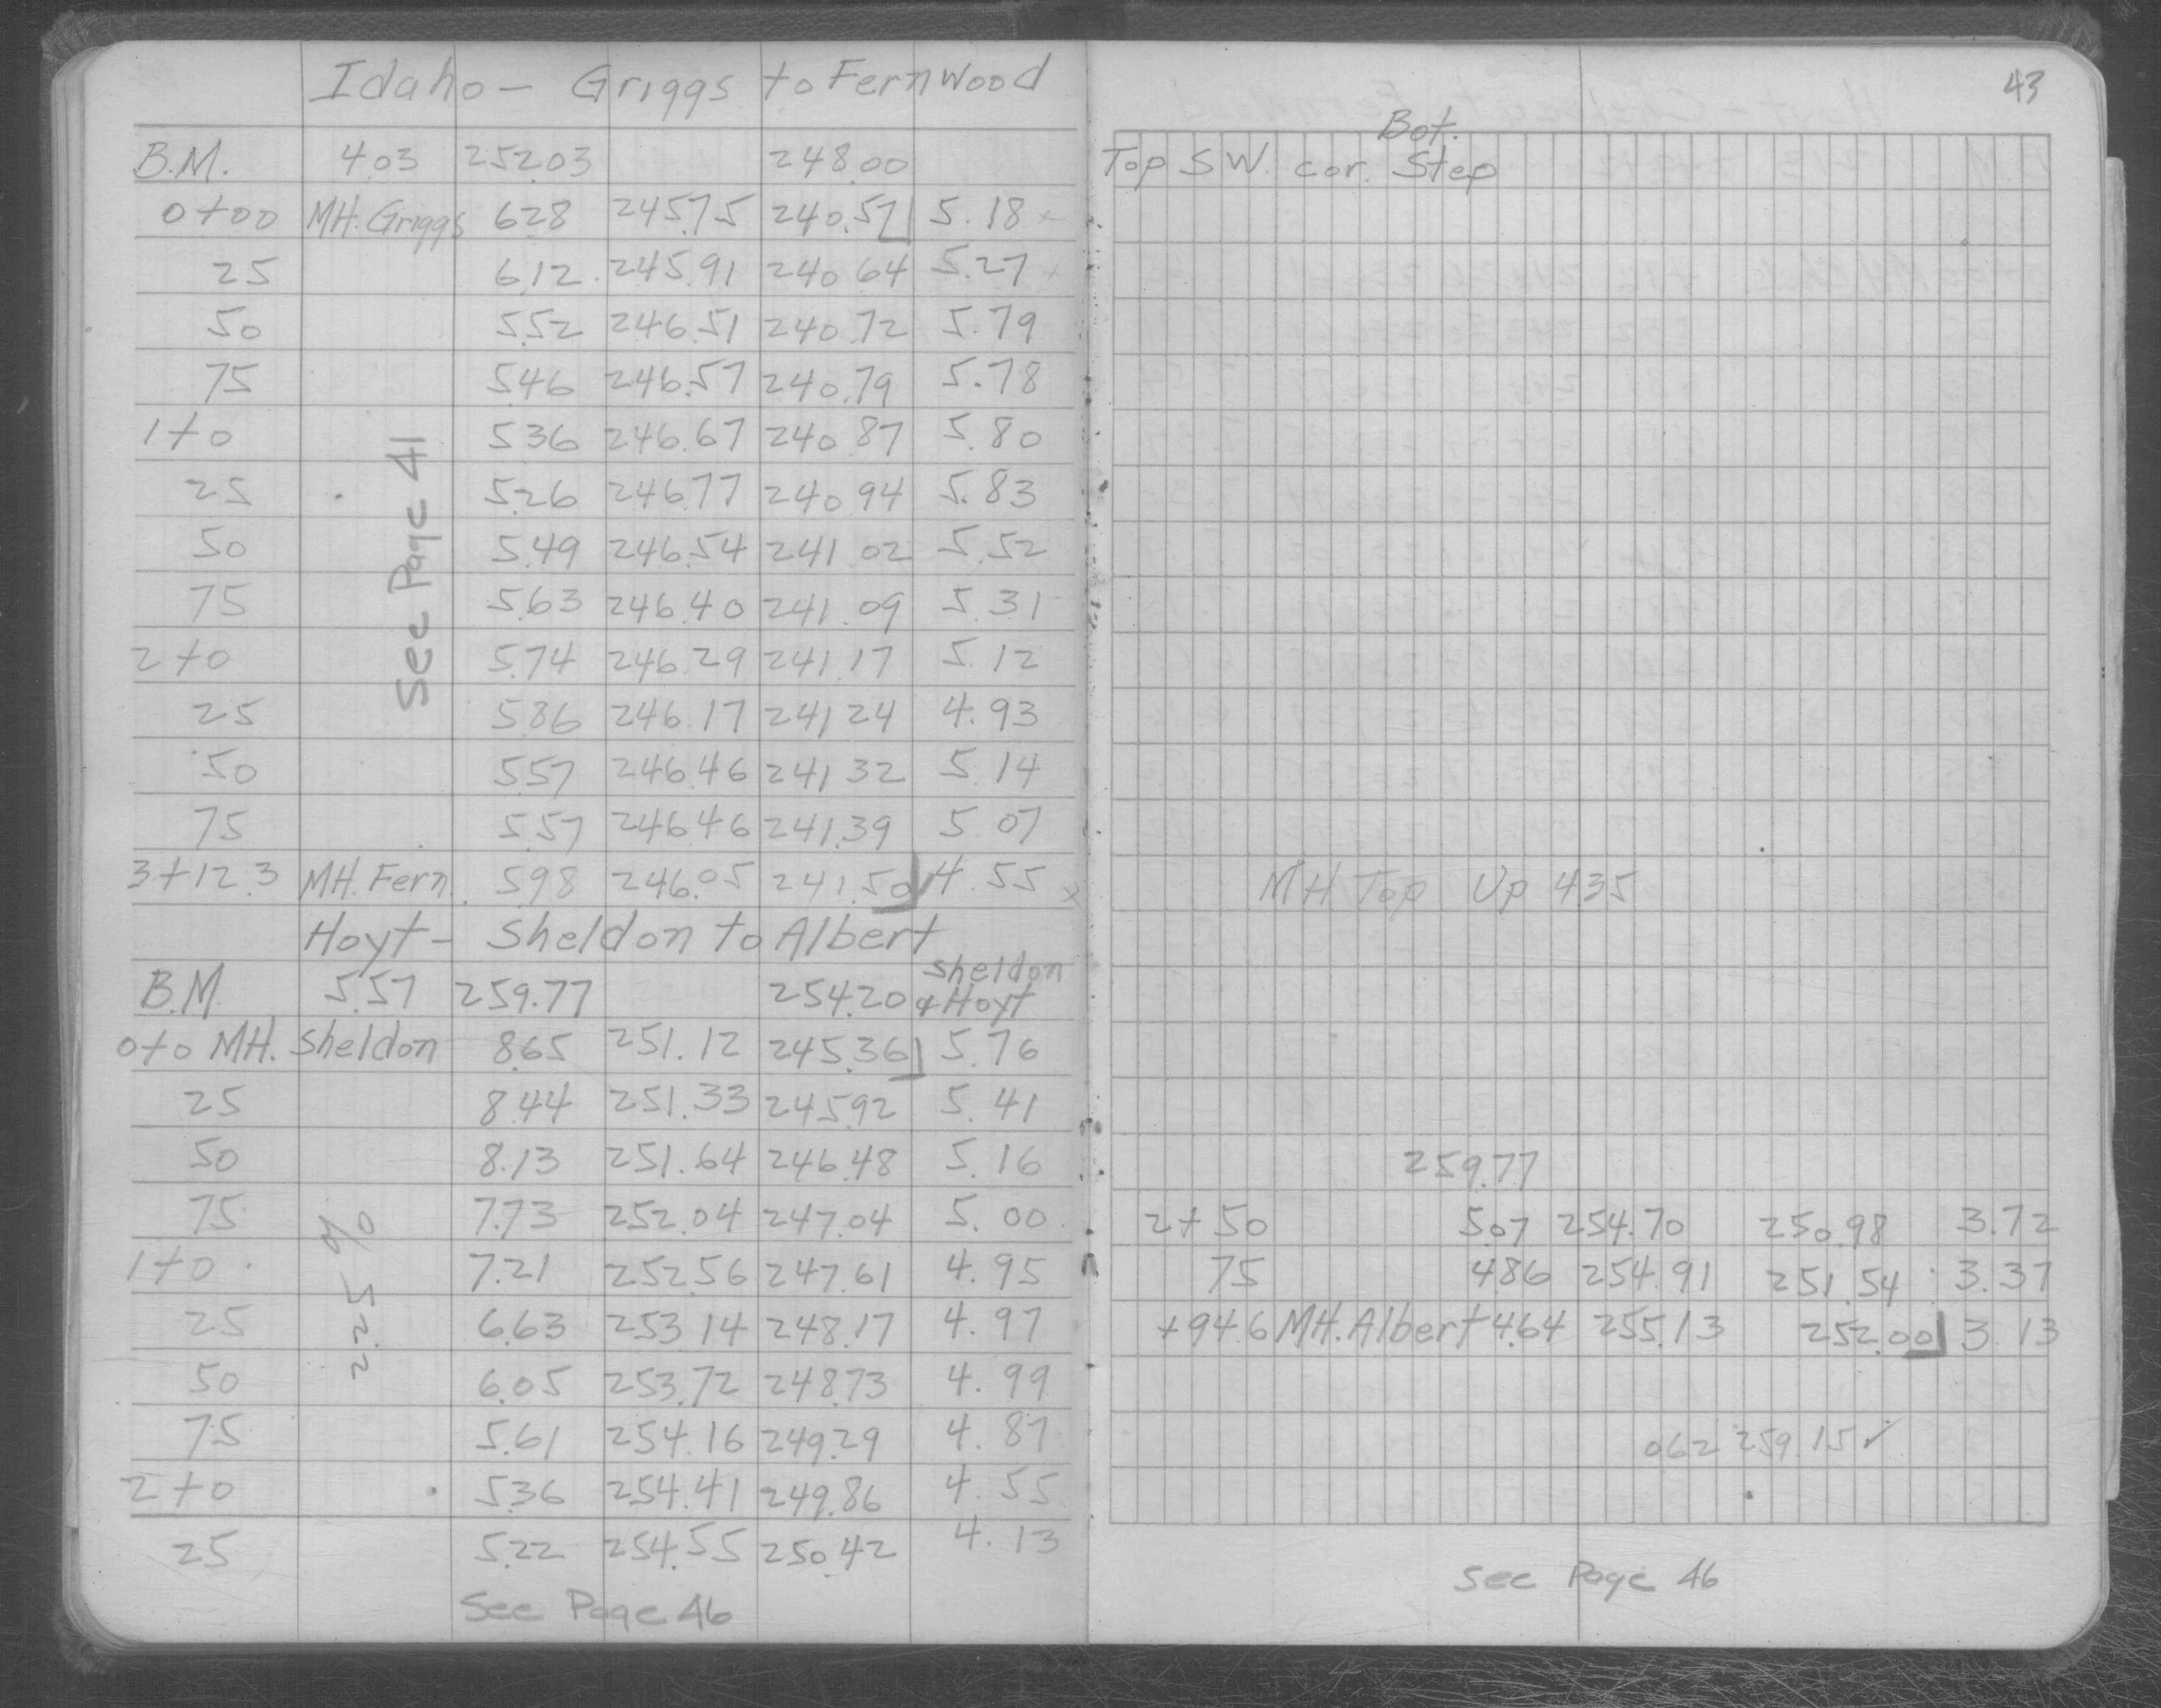 Idaho - Griggs to Fernwood
B.M. 4.03 252.03 248.00
0+00 MH. Griggs 6.28 245.75 240.57 5.18 x
25 6.12 245.91 240.64 5.27 x
50 5.52 246.51 240.72 5.79
75 5.46 246.57 240.79 5.78
1+0 5.36 246.67 240.87 5.80
25 5.26 246.77 240.94 5.83
50 5.49 246.54 241.02 5.52
75 5.63 246.40 241.09 5.31
2+0 5.74 246.29 241.17 5.12
25 5.86 246.17 241.24 4.93
50 5.57 246.46 241.32 5.14
75 5.57 246.46 241.39 5.07
3+12.3 MH. Fern. 5.98 246.05 241.50 4.55 x
See Page 41
Hoyt - Sheldon to Albert
B.M. 5.57 259.77 254.20 Sheldon & Hoyt
0+0 MH. Sheldon 8.65 251.12 245.36 5.76
25 8.44 251.33 245.92 5.41
50 8.13 251.64 246.48 5.16
75 7.73 252.04 247.04 5.00
1+0 7.21 252.56 247.61 4.95
25 6.63 253.14 248.17 4.97
50 6.05 253.72 248.73 4.99
75 5.61 254.16 249.29 4.87
2+0 5.36 254.41 249.86 4.55
25 5.22 254.55 250.42 4.13
2.25 %
See Page 46
43
Bot.
Top SW. cor. Step
MH Top Up 4.35
259.77
2+50 5.07 254.70 250.98 3.72
75 4.86 254.91 251.54 3.37
+94.6 MH. Albert 4.64 255.13 252.00 3.13
0.62 259.15 ✓
See Page 46